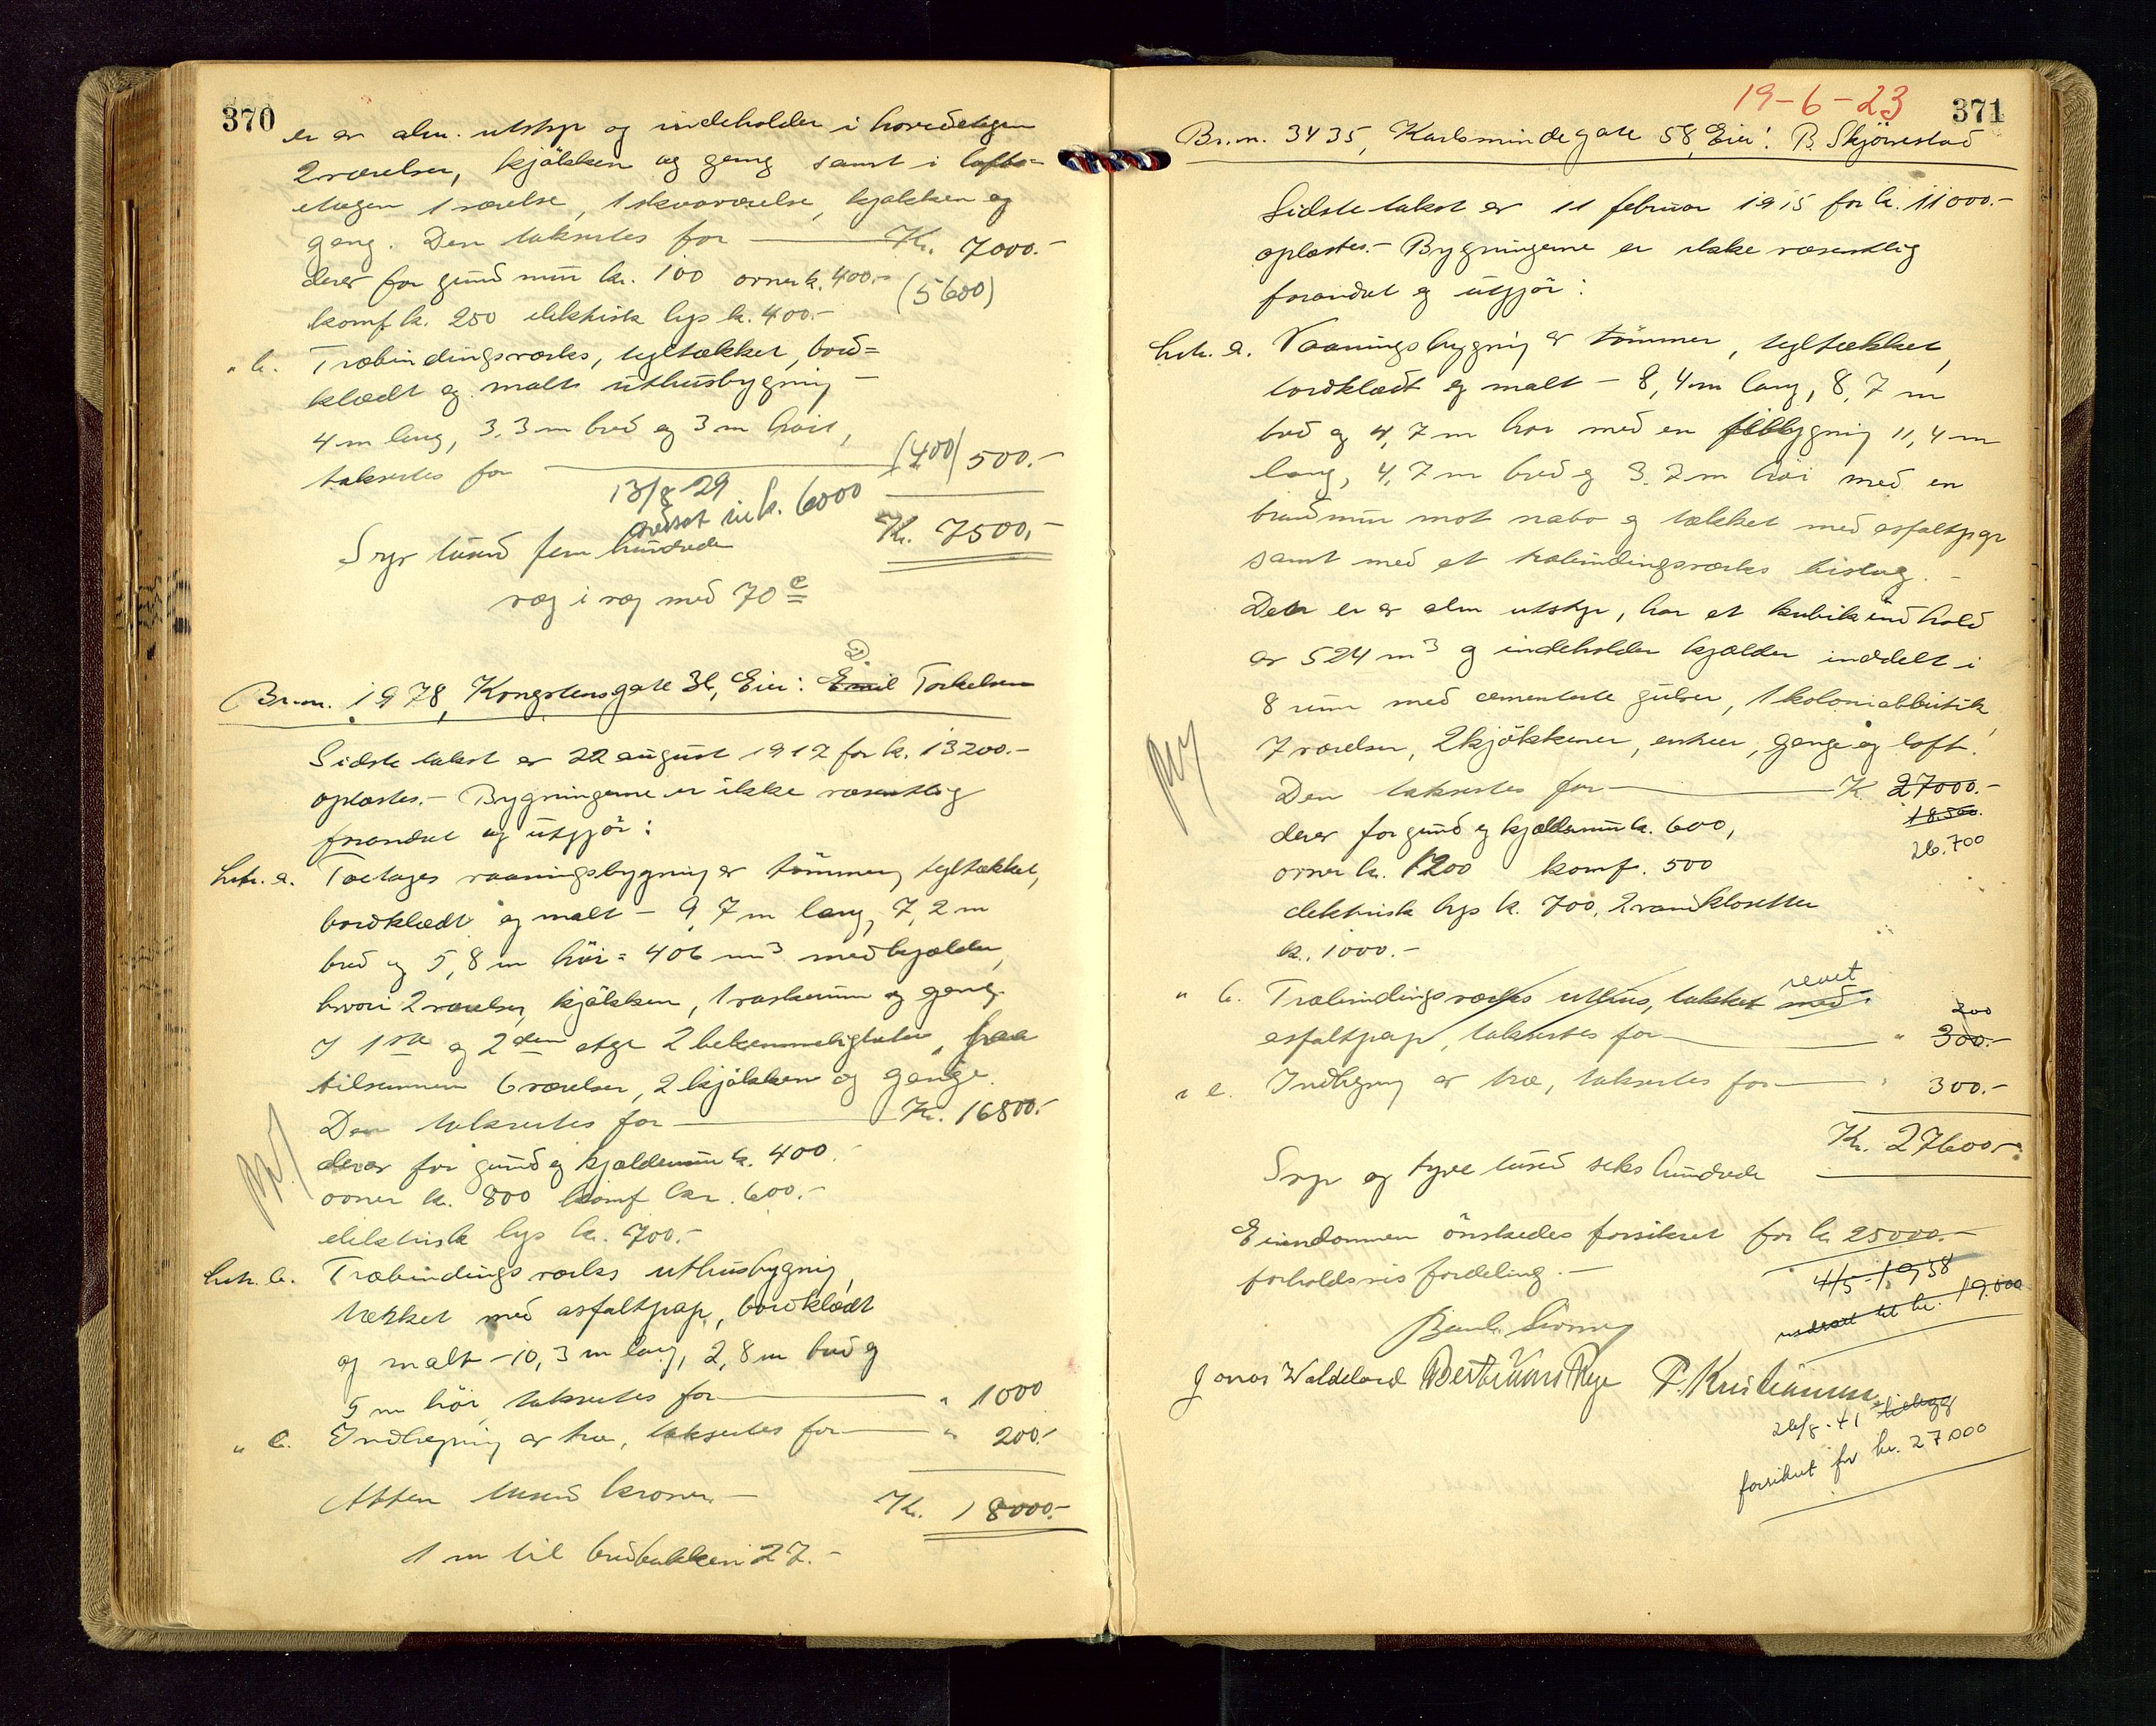 370
er av alm. utstyr og indeholder i hovedetagen
2 værelser, kjøkken og gang samt i lofts=
etagen 1 værelse, 1 skraaværelse, kjøkken og
gang. Den takseres for Kr. 7000.-
derav for grund mur kr. 100 ovner k. 400.- (5600)
komf k. 250 elektrisk lys k. 400.-
" b. Træbindingsværks, tegltækket, bord=
klædt og malt uthusbygning -
4 m lang, 3,3 m bred og 3 m høi,
takseres for (400) 500.-
13/8 29
nedsat til k. 6000
Kr. 7500,-
Syv tusind fem hundrede
væg i væg med 70 c
Br.-n. 1978, Kongstensgate 36, Eier: Emil Torkelsen
Sidste takst av 22 august 1912 for k. 13200.-
oplæstes.- Bygningerne er ikke væsentlig
forandret og utgjør:
Litr. a. Toetages vaaningsbygning av tømmer, tegltækket,
bordklædt og malt - 9,7 m lang, 7,2 m
bred og 5,8 m høi = 406 m3 med kjælder,
hvori 2 værelser, kjøkken, 1 vaskerum og gang.
I 1ste og 2den etge 2 bekvemmeligheter, paa
tilsammen 6 værelser, 2 kjøkken og gange.
Den takseres for Kr. 16800.-
derav for grund og kjældermur k. 400.
ovner k. 800 komf kr. 600.-
elektrisk lys kr. 700.-
Litr. b. Træbindingsværks uthusbygning,
tækket med asfaltpap, bordklædt
og malt - 10,3 m lang, 2,8 m bred og
5 m høi, takseres for " 1000
" c. Indhegning av træ, takseres for " 200.-
Atten tusind kroner.- Kr. 18000.-
1 m til bredbakken 27.-
19-6-23
371
Br.n. 3435, Karlsmindegate 58, Eier: B. Skjørestad
Sidste takst av 11 februar 1915 for k. 11000.-
oplæstes.- Bygningerne er ikke væsentlig
forandret og utgjør:
Litr. a. Vaaningsbygning av tømmer, tegltækket,
bordklædt og malt - 8,4 m lang, 8,7 m
bred og 4,7 m høi med en tilbygning 11,4 m
lang, 4,7 m bred og 3,7 m høi med en
brandmur mot nabo og tækket med asfaltpap
samt med et træbindingsværks bislag.-
Den er av alm utstyr, har et kubikindhold
av 524 m3 og indeholder kjælder inddelt i
8 rum med cementerte gulver, 1 kolonialbutik,
7 værelser, 2 kjøkkener, entree, gange og loft.
Den takseres for K. 27000.-
18.500.
derav for grund og kjældermur k. 600,
26.700
ovner kr. 1200 komf. 500
elektrisk lys k. 700, 2 vandklosetter
k. 1000.-
revet
" b. Træbindingsværks uthus, tækket med
200
asfaltpap, takseres for " 300.-
" c. Indhegning av træ, takseres for " 300.-
Kr. 27600.-
Syv og tyve tusind seks hundrede
Eiendommen ønskedes forsikret for k. 25000.-
forholdsvis fordeling.-
4/5-1938
nedsatt til kr. 19.000
Jonas Waldeland P. Kristiansen
26/8-41
forsikret for kr. 27.000